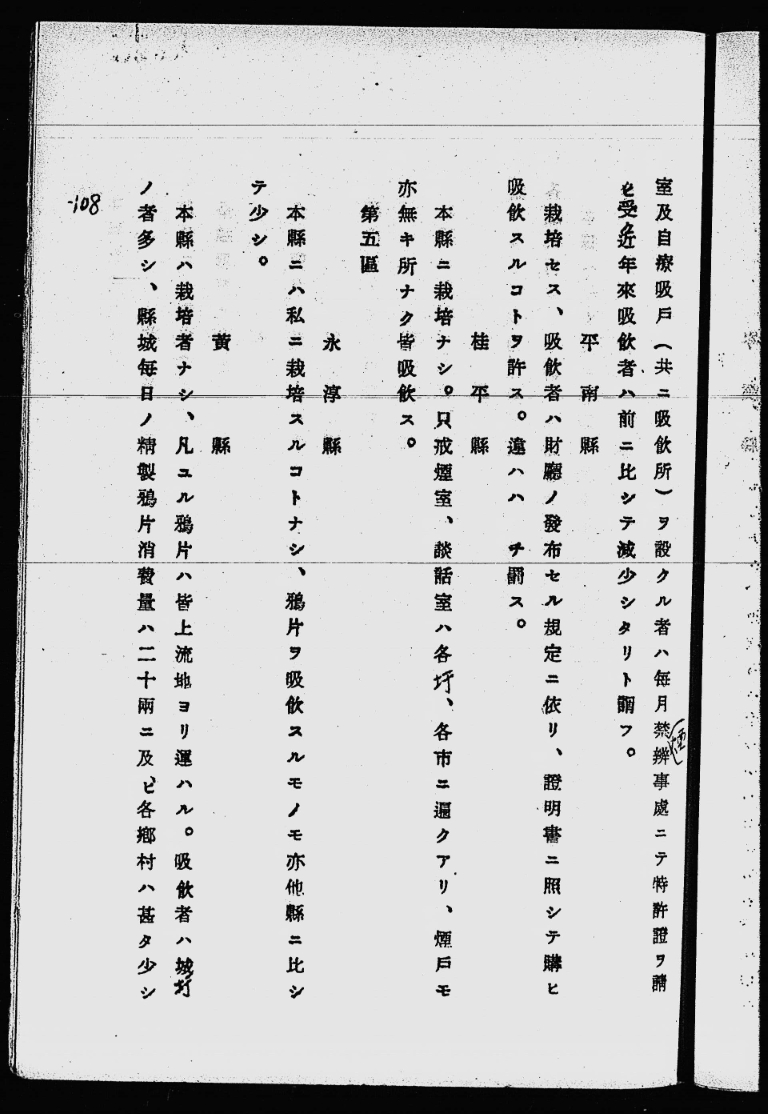 室及自療吸戶（共ニ吸飲所）ヲ設クル者ハ每月禁煙辨事處ニテ特許證ヲ請
ヒ受ク近年來吸飲者ハ前ニ比シテ減少シタリト謂フ。
平南縣
栽培セス、吸飲者ハ財廳ノ發布セル規定ニ依リ、證明書ニ照シテ購ヒ
吸飲スルコトヲ許ス。違ハハ チ罰ス。
桂平縣
本縣ニ栽培ナシ。只戒煙室、談話室ハ各圩、各市ニ遍クアリ、煙戶モ
亦無キ所ナク皆吸飲ス。
第五區
永淳縣
本縣ニハ私ニ栽培スルコトナシ、鴉片ヲ吸飲スルモノモ亦他縣ニ比シ
テ少シ。
黃縣
本縣ハ栽培者ナシ、凡ユル鴉片ハ皆上流地ヨリ運ハル。吸飲者ハ城圩
ノ者多シ、縣城每日ノ精製鴉片消費量ハ二十兩ニ及ヒ、各鄉村ハ甚タ少シ
-108